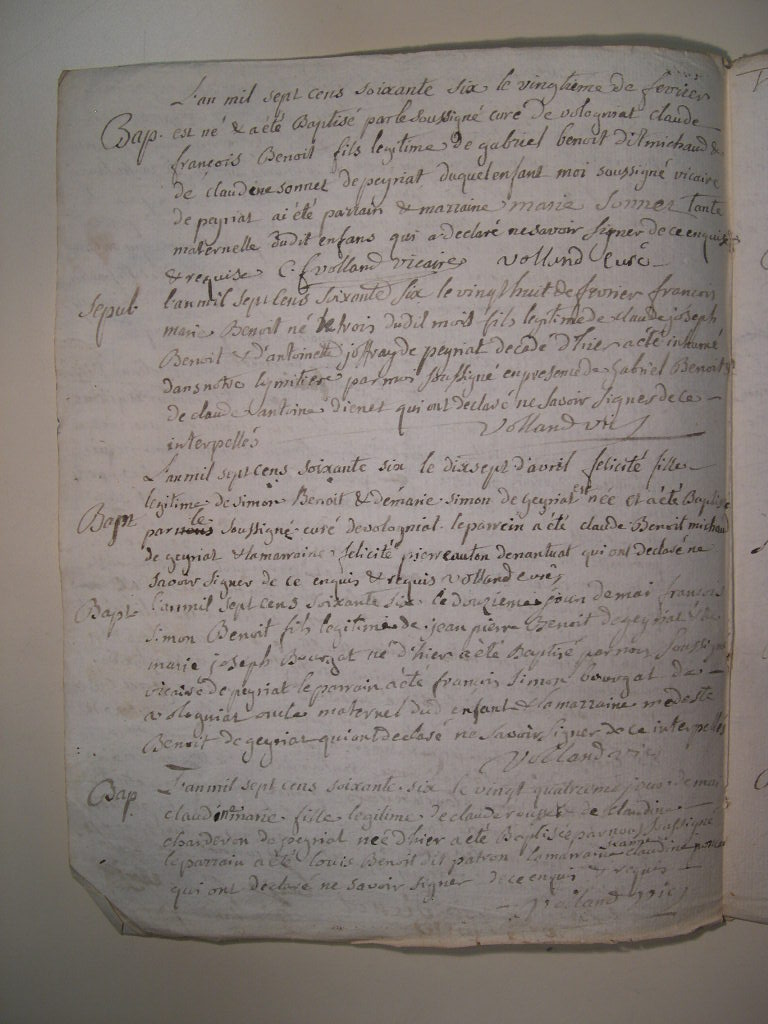 L'an mil sept cens soixante six le vingtieme de fevrier
Bap. est né & a été Baptisé par le soussigné curé de vologniat claude
francois Benoit fils legitime de gabriel benoit dit michaud &
de claudine sonnet de peyriat duquel enfant moi soussigné vicaire
de peyriat ai été parrain & marraine marie sonnet tante
maternelle dudit enfans qui a declaré ne savoir signer de ce enquise
& requise C. f volland vicaire volland curé
Sepul. l'an mil sept cens soixante six le vingt huit de fevrier francois
marie Benoit né le trois dudit mois fils legitime de claude joseph
Benoit & d'antoinette joffray de peyriat decede d'hier a été inhumé
dans notre cymitiere par moi soussigné en presence de Gabriel Benoit &
de claude antoine dienet qui ont declaré ne savoir signer de ce
interpellés volland vic
L'an mil sept cens soixante six le dix sept d'avril felicité fille
legitime de simon Benoit & de marie simon de geyriat est née et a été Baptisée
Bapt par le soussigné curé de vologniat le parrein a été claude Benoit michaud
de geyriat & la marraine felicité pierre de nantuat qui ont declaré ne
savoir signer de ce enquis & requis volland curé
Bapt l'an mil sept cens soixante six le douzieme jour de mai francois
simon Benoit fils legitime de jean pierre Benoit de geyriat & de
marie joseph Bourgat né d'hier a été Baptisé par nous soussigné
vicaire de peyriat le parrain a été francois simon bourgat de
vologniat oncle maternel dud enfant & la marraine modeste
Benoit de geyriat qui ont declaré ne savoir signer de ce interpellés
volland vic
Bap L'an mil sept cens soixante six le vingt quatrieme jour de mai
claudine marie fille legitime de claude & de claudine
charderon de peyriat née d'hier a été Baptisée par nous soussigné
le parrain a été louis Benoit dit patron la marraine claudine
qui ont declaré ne savoir signer de ce enquis & requis
volland vic